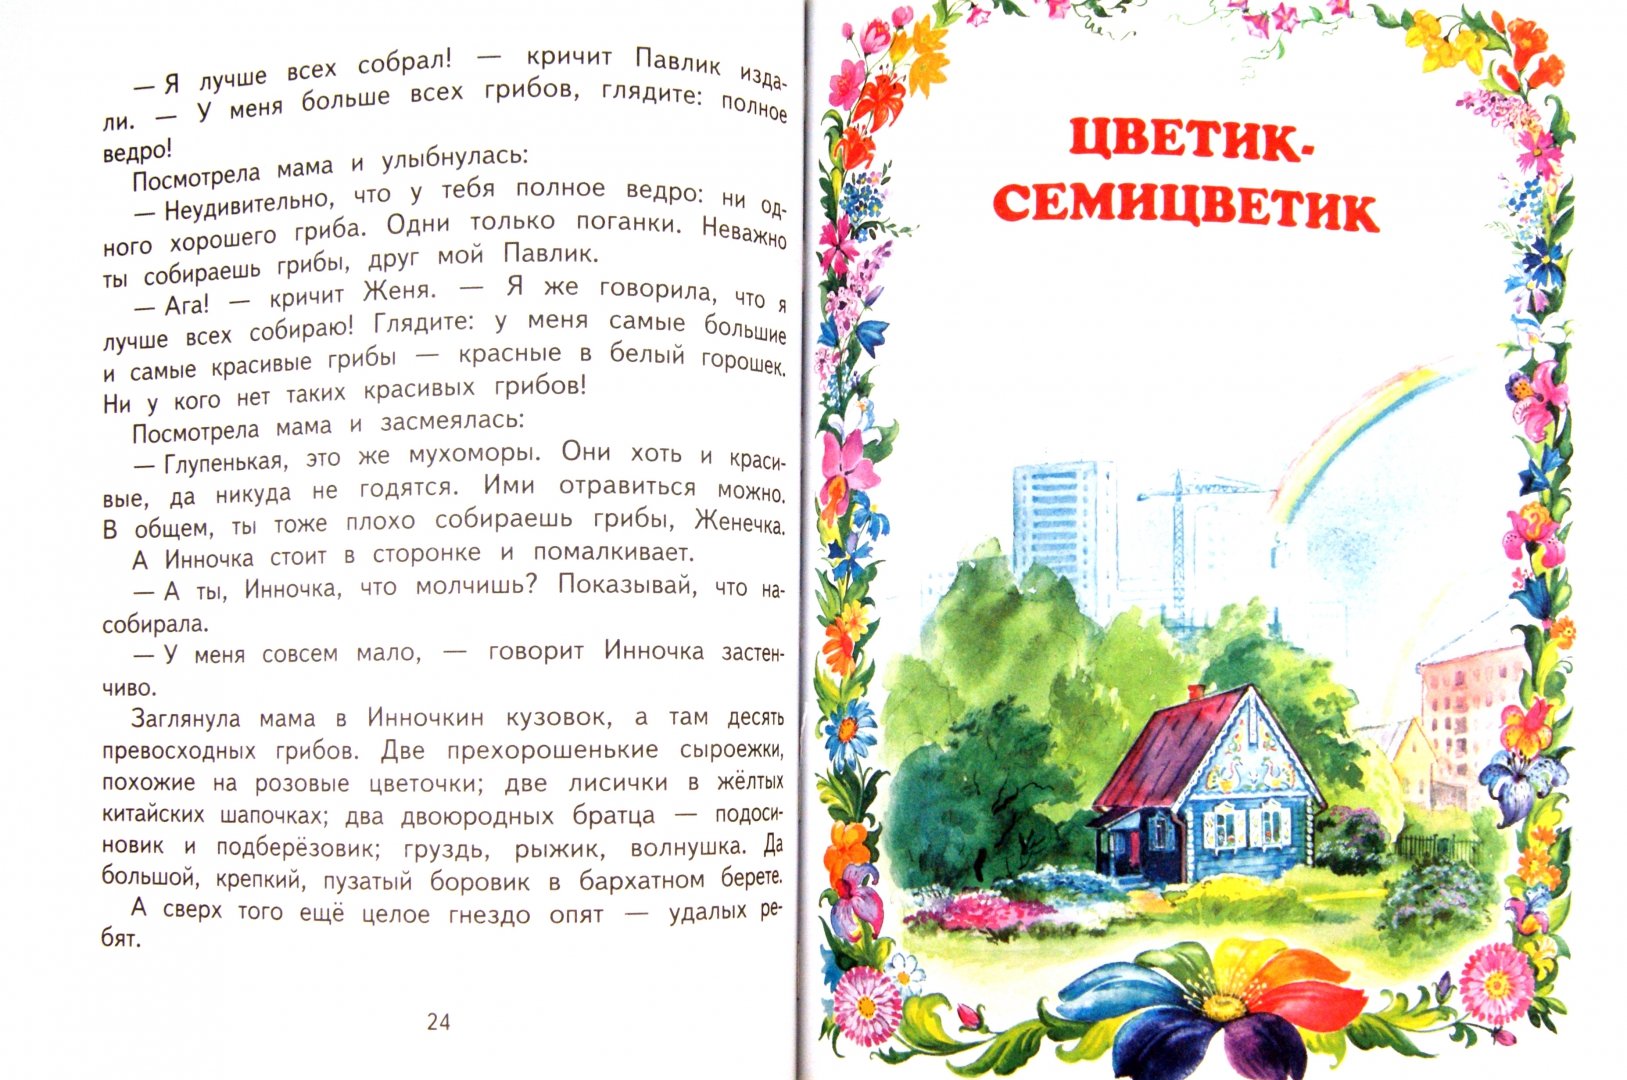 — Я лучше всех собрал! — кричит Павлик изда-
ли. — У меня больше всех грибов, глядите: полное
ведро!
Посмотрела мама и улыбнулась:
— Неудивительно, что у тебя полное ведро: ни од-
ного хорошего гриба. Одни только поганки. Неважно
ты собираешь грибы, друг мой Павлик.
— Ага! — кричит Женя. — Я же говорила, что я
лучше всех собираю! Глядите: у меня самые большие
и самые красивые грибы — красные в белый горошек.
Ни у кого нет таких красивых грибов!
Посмотрела мама и засмеялась:
— Глупенькая, это же мухоморы. Они хоть и краси-
вые, да никуда не годятся. Ими отравиться можно.
В общем, ты тоже плохо собираешь грибы, Женечка.
А Инночка стоит в сторонке и помалкивает.
— А ты, Инночка, что молчишь? Показывай, что на-
собирала.
— У меня совсем мало, — говорит Инночка застен-
чиво.
Заглянула мама в Инночкин кузовок, а там десять
превосходных грибов. Две прехорошенькие сыроежки,
похожие на розовые цветочки; две лисички в жёлтых
китайских шапочках; два двоюродных братца — подоси-
новик и подберёзовик; груздь, рыжик, волнушка. Да
большой, крепкий, пузатый боровик в бархатном берете.
А сверх того ещё целое гнездо опят — удалых ре-
бят.
24
ЦВЕТИК-
СЕМИЦВЕТИК